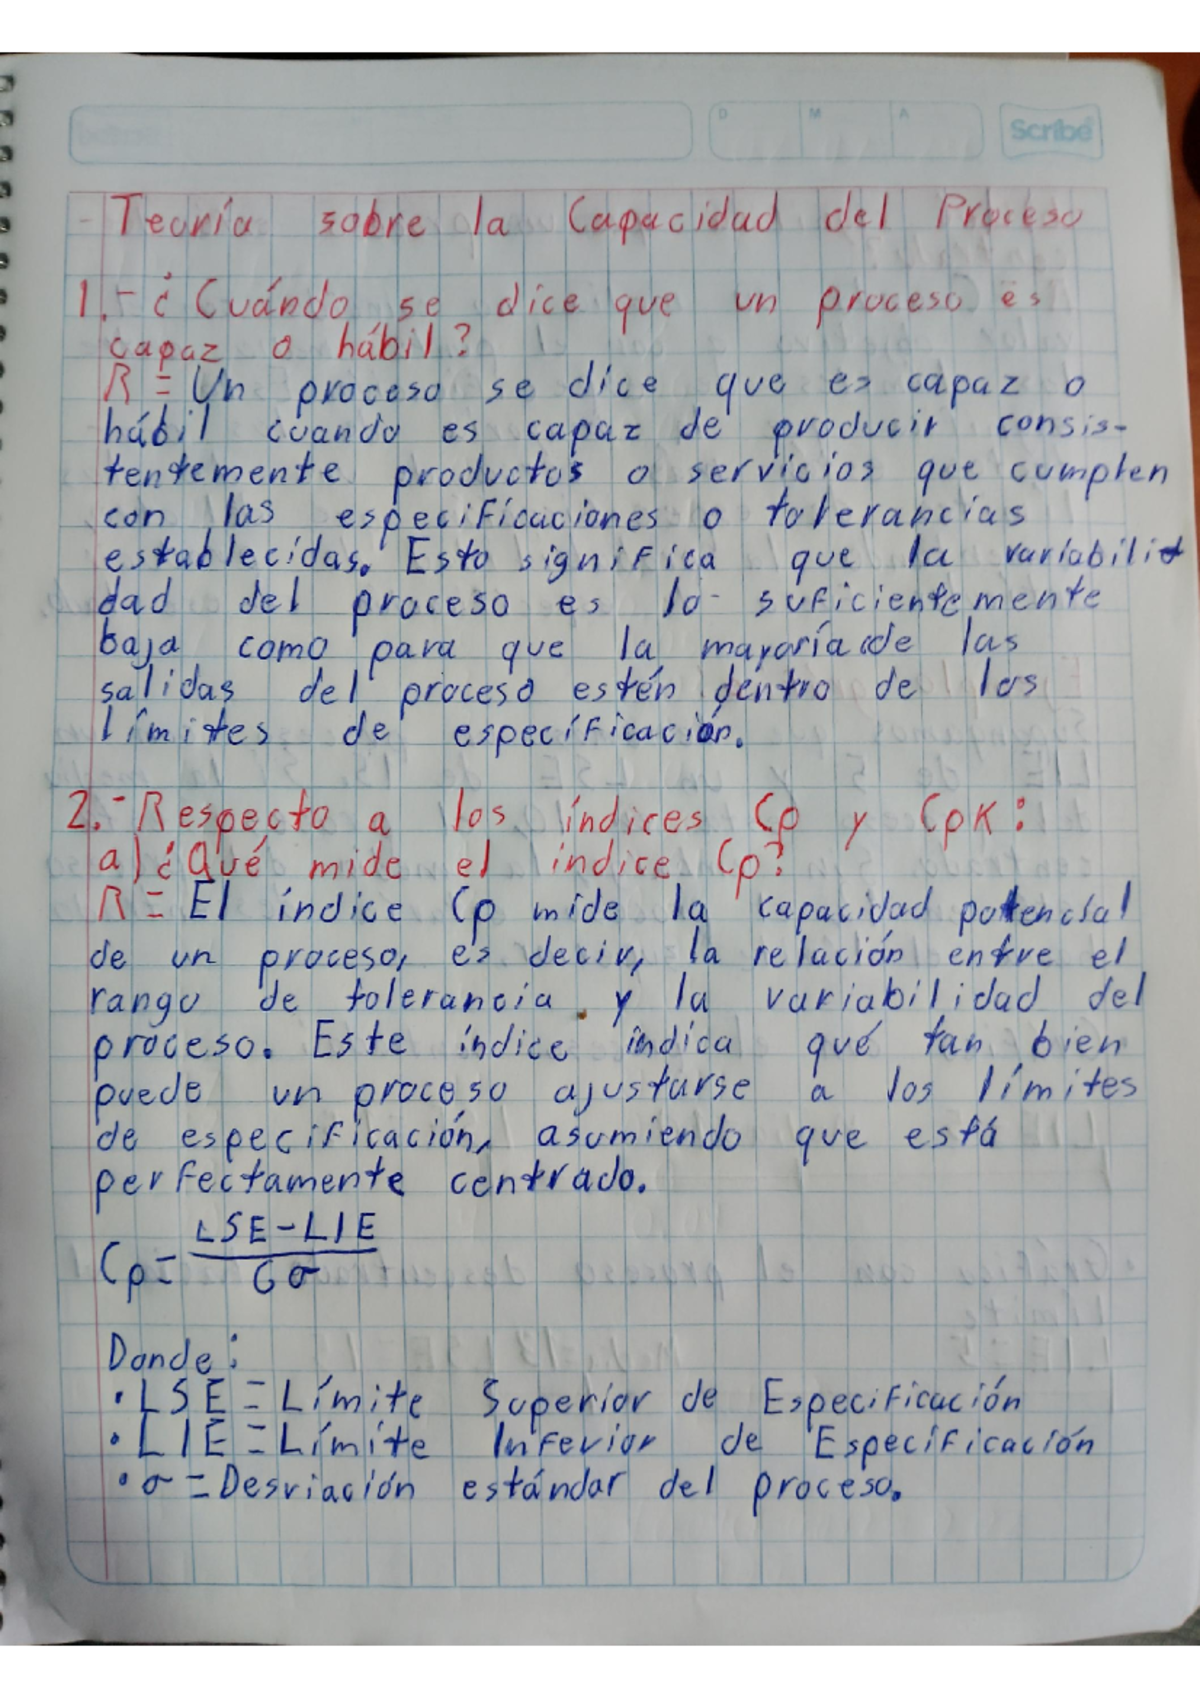 D M A
Scribe
- Teoría sobre la Capacidad del Proceso
1.- ¿Cuándo se dice que un proceso es
capaz o hábil?
R = Un proceso se dice que es capaz o
hábil cuando es capaz de producir consis-
tentemente productos o servicios que cumplen
con las especificaciones o tolerancias
establecidas. Esto significa que la variabili
dad del proceso es lo suficientemente
baja como para que la mayoría de las
salidas del proceso estén dentro de los
límites de especificación.
2.- Respecto a los índices Cp y CpK:
a) ¿Qué mide el índice Cp?
R = El índice Cp mide la capacidad potencial
de un proceso, es decir, la relación entre el
rango de tolerancia y la variabilidad del
proceso. Este índice indica qué tan bien
puede un proceso ajustarse a los límites
de especificación, asumiendo que está
perfectamente centrado.
Cp = LSE - LIE
6σ
Donde:
• LSE = Límite Superior de Especificación
• LIE = Límite Inferior de Especificación
• σ = Desviación estándar del proceso.